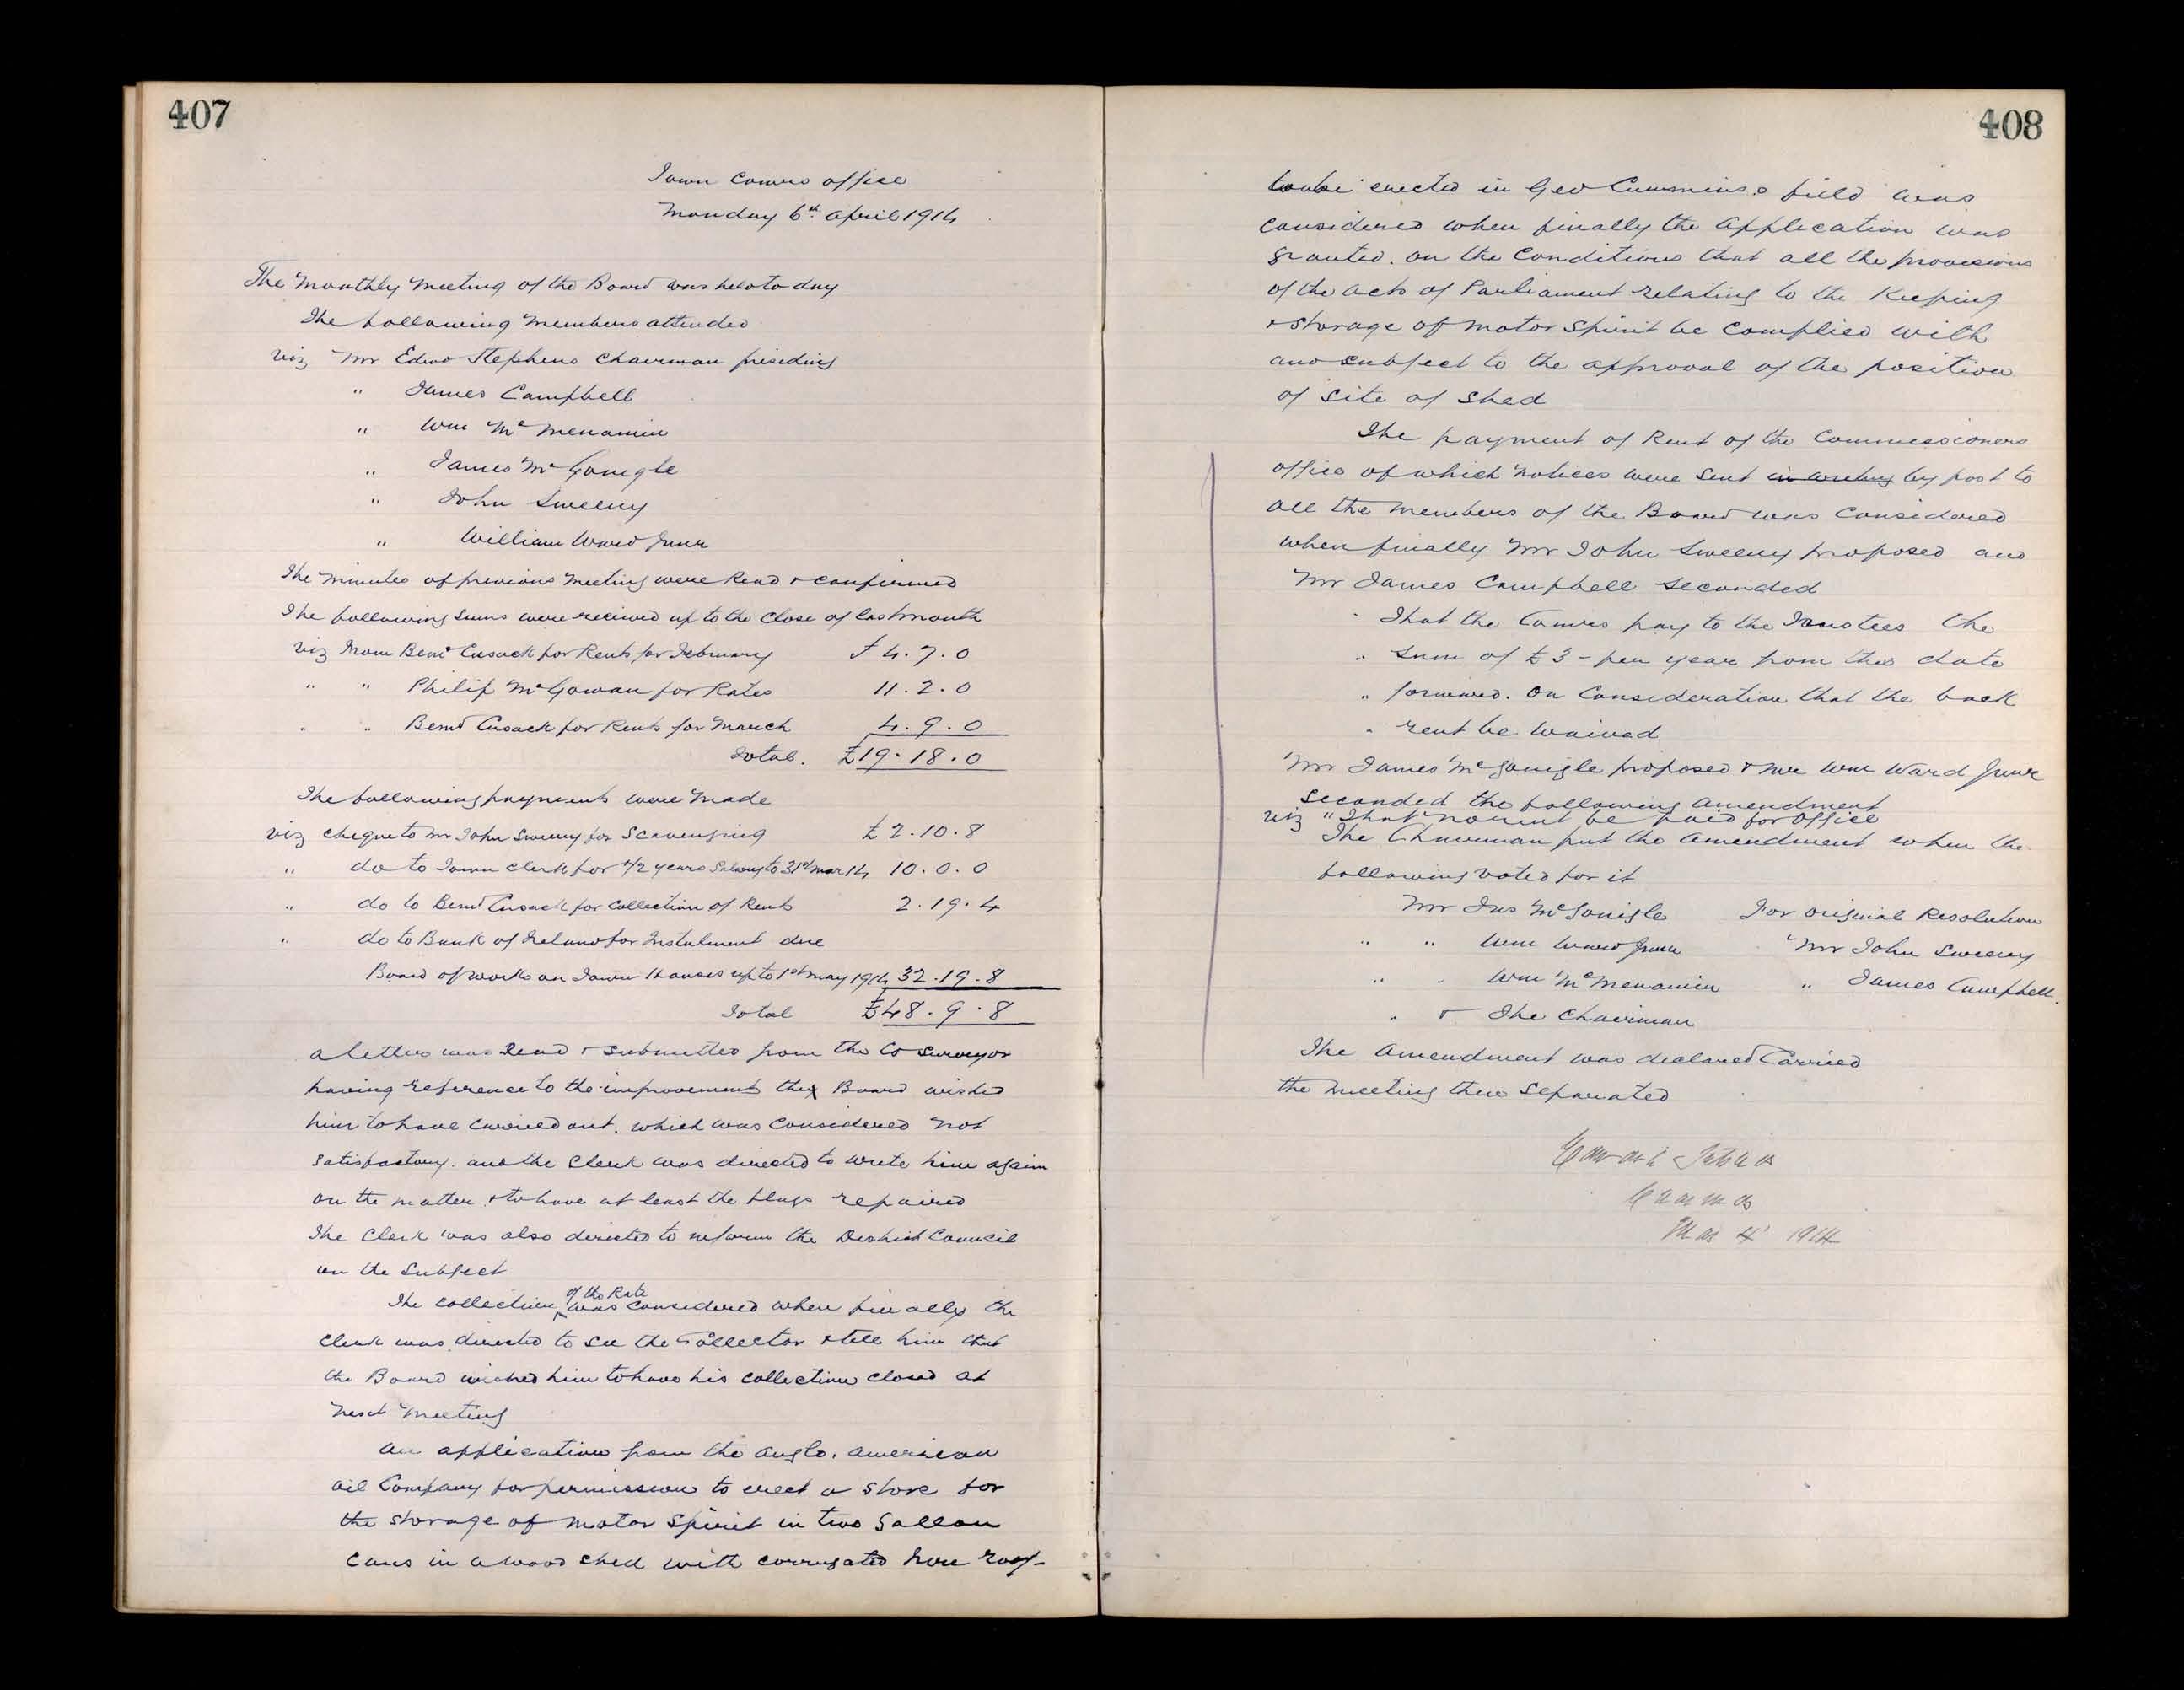 407
Town Comrs office
Monday 6th April 1914
The Monthly Meeting of the Board was held to day
The following Members attended
viz Mr Edwd Stephens Chairman presiding
" James Campbell
" Wm McMenamin
" James McGonigle
" John Sweeny
" William Ward Junr
The Minutes of previous Meeting were Read & confirmed
The following sums were received up to the Close of last month
viz From Bernd Cusack for Rents for February £4.7.0
" " Philip McGowan for Rates 11.2.0
" " Bernd Cusack for Rents for March 4.9.0
Total. £19.18.0
The following payments were Made
viz cheque to Mr John Sweeny for Scavenging £2.10.8
" do to Town Clerk for 1/2 years Salary to 31st Mar 14 10.0.0
" do to Bernd Cusack for Collection of Rents 2.19.4
" do to Bank of Ireland for Instalment due
Board of works on Town Houses up to 1st May 1914 32.19.8
Total £48.9.8
A letter was Read & submitted from the Co Surveyor
having reference to the improvements the Board wished
him to have carried out. which was Considered Not
satisfactory. and the Clerk was directed to write him again
on the matter & to have at least the flags repaired
The Clerk was also directed to inform the District Council
on the Subject
The collection of the Rate was considered when finally the
Clerk was directed to see the Collector & tell him that
the Board wished him to have his collection closed at
Next Meeting
An application from the Anglo. American
Oil Company for permission to erect a store for
the storage of motor spirit in two Gallon
Cans in a wood shed with corrugated Iron roof-
408
to be erected in Geo Cummins.s field was
Considered when finally the Application was
granted. on the Conditions that all the provisions
of the Acts of Parliament relating to the Keeping
& storage of motor spirit be Complied with
and subject to the approval of the position
of site of shed
The payment of Rent of the Commissioners
office of which notices were sent in writing by post to
all the Members of the Board was Considered
when finally Mr John Sweeny proposed and
Mr James Campbell seconded
" That the Comrs pay to the Trustees the
" Sum of £3 - per year from this date
" forward. On Consideration that the back
" rent be Waived
Mr James McGonigle proposed & Mr Wm Ward Junr
seconded the following Amendment
viz "That no rent be paid for Office
The Chairman put the Amendment when the
following voted for it
Mr Jas McGonigle For original Resolution
" " Wm Ward Junr Mr John Sweeny
" " Wm McMenamin " James Campbell.
" & The Chairman
The Amendment was declared Carried
the Meeting then Separated
Edward Stephens
Chairman
May 4 1914